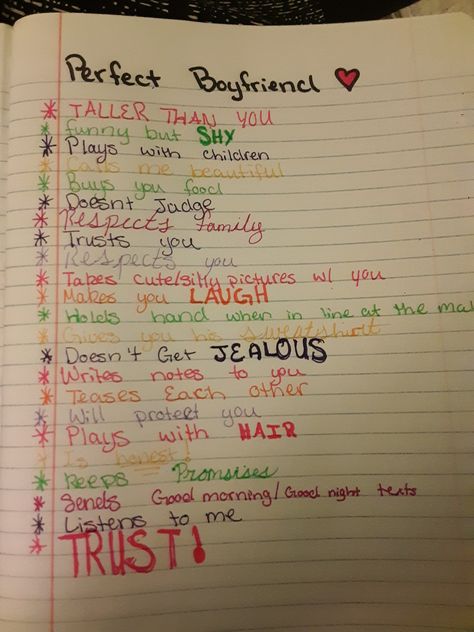 Perfect Boyfriend ♥
* TALLER THAN YOU
* funny but SHY
* Plays with children
* Calls me beautiful
* Buys you food
* Doesnt Judge
* Respects family
* Trusts you
* Respects you
* Takes cute/silly pictures w/ you
* Makes you LAUGH
* Holds hand when in line at the mal
* Gives you his sweatshirt
* Doesn't Get JEALOUS
* Writes notes to you
* Teases Each other
* Will protect you
* Plays with HAIR
* Is honest!
* Keeps Promises
* Sends Good morning/Good night texts
* Listens to me
* TRUST!